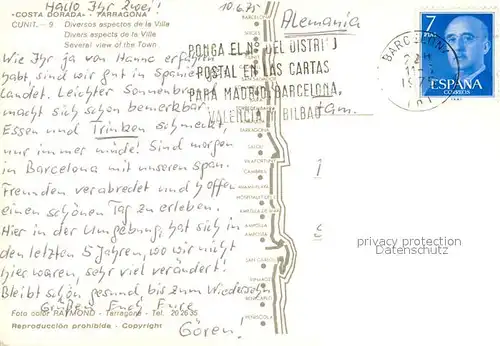 Hallo Ihr Zwei!
10.6.75
«COSTA DORADA» - TARRAGONA
CUNIT. - 9 Diversos aspectos de la Villa
Divers aspects de la Ville
Several view of the Town
Wie Ihr ja von Hanne erfahren
habt, sind wir gut in Spanien
Landet. Leichter Sonnenbrand
macht sich schon bemerkbar.
Essen und Trinken schmeckt,
nur immer müde! Sind morgen
in Barcelona mit unseren span.
Freunden verabredet und hoffen
einen schönen Tag zu erleben.
Hier in der Umgebung, hat sich in
den letzten 5 Jahren, wo wir nicht
hier waren, sehr viel verändert!
Bleibt schön gesund bis zum Wiedersehn
Grüßen Euch Eure
Gören!
Foto color RAYMOND - Tarragona - Tel. 20 26 35
Reproducción prohibida - Copyright
Alemania
PONGA EL N.º DEL DISTRITO
POSTAL EN LAS CARTAS
PARA MADRID, BARCELONA,
VALENCIA Y BILBAO
Fam.
BARCELONA
7
PTAS
ESPAÑA
CORREOS
BARCELONA
TARRAGONA
SALOU
VILAFORTUNY
CAMBRILS
MIAMI-PLAYA
AMPOLLA
AMPOSTA
VINAROZ
BENICARLO
PEÑISCOLA
privacy protection
Datenschutz